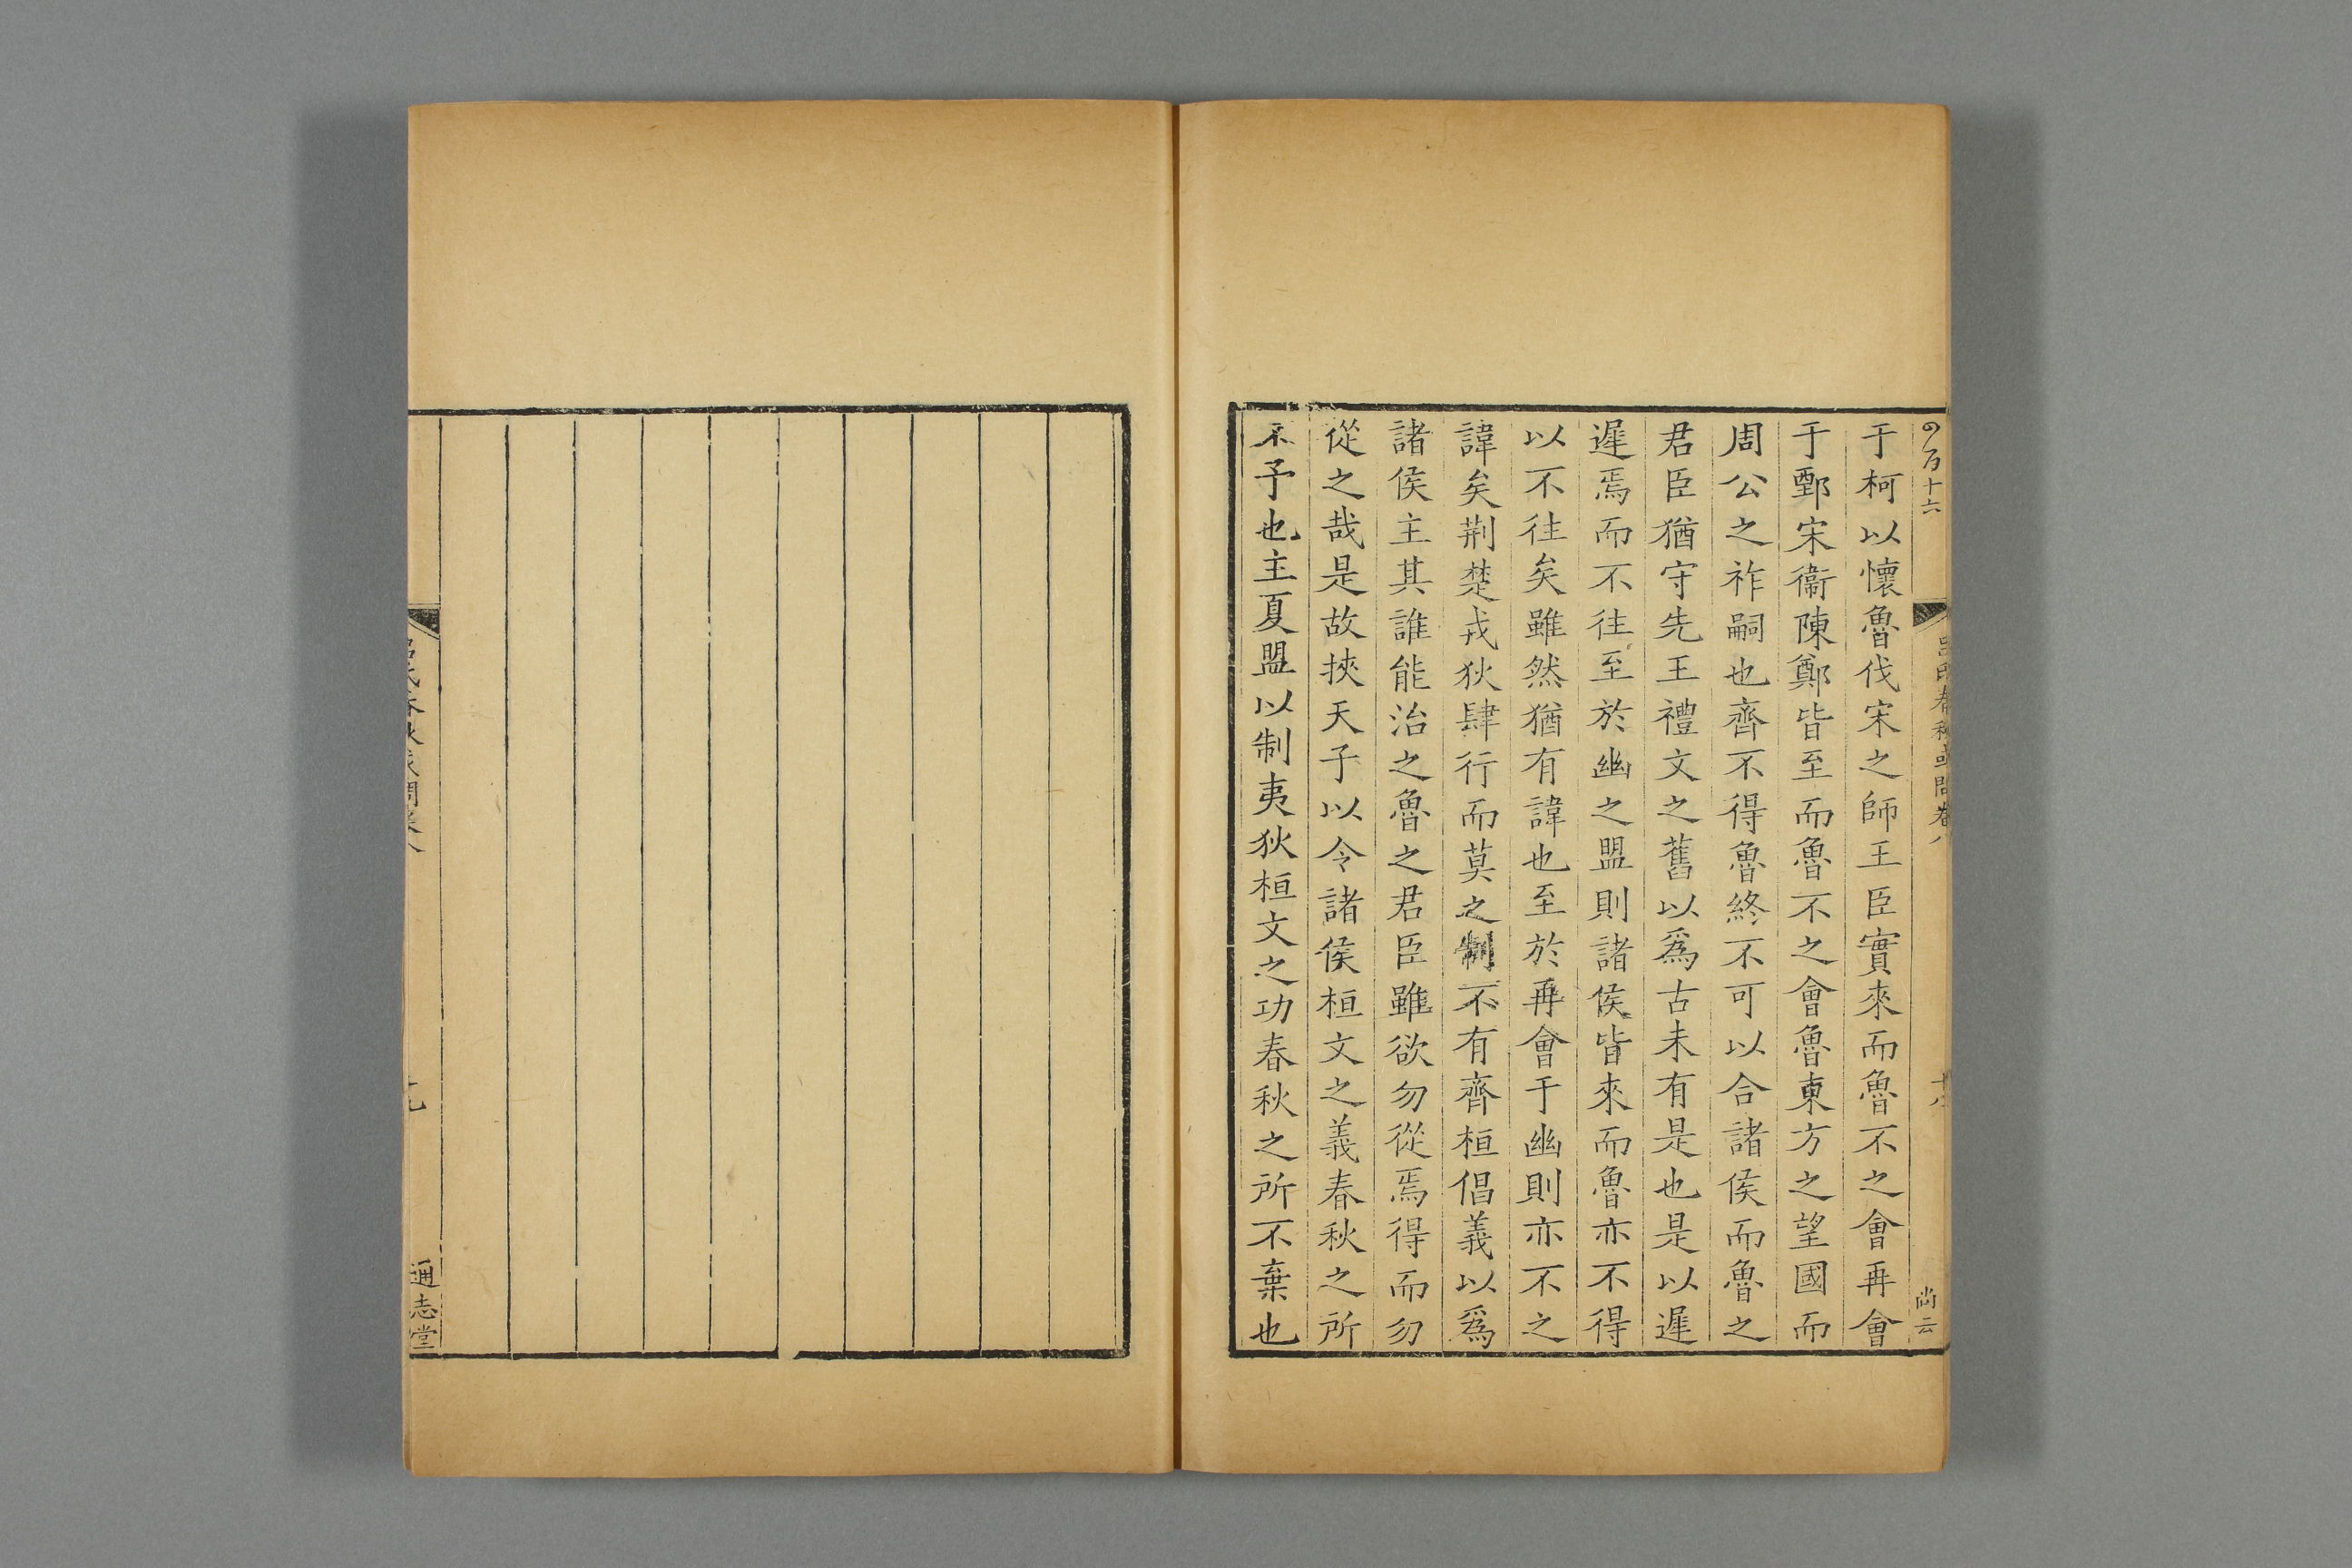 于柯以懷魯伐宋之師王臣實來而魯不之會再會
于鄄宋衞陳鄭皆至而魯不之會魯東方之望國而
周公之祚嗣也齊不得魯終不可以合諸侯而魯之
君臣猶守先王禮文之舊以爲古未有是也是以遲
遲焉而不往至於幽之盟則諸侯皆來而魯亦不得
以不往矣雖然猶有諱也至於再會于幽則亦不之
諱矣荆楚戎狄肆行而莫之制不有齊桓倡義以爲
諸侯主其誰能治之魯之君臣雖欲勿從焉得而勿
從之哉是故挾天子以令諸侯桓文之義春秋之所
不予也主夏盟以制夷狄桓文之功春秋之所不棄也
呂氏春秋或問卷八
十八
尚云
通志堂